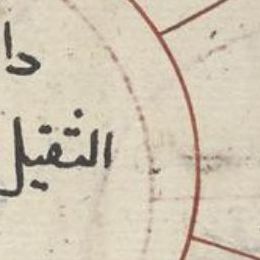 دا
الثقيل